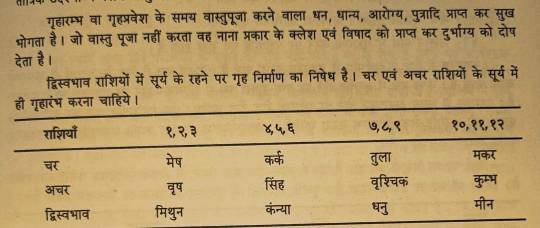 गृहारम्भ वा गृहप्रवेश के समय वास्तुपूजा करने वाला धन, धान्य, आरोग्य, पुत्रादि प्राप्त कर सुख
भोगता है। जो वास्तु पूजा नहीं करता वह नाना प्रकार के क्लेश एवं विषाद को प्राप्त कर दुर्भाग्य को दोष
देता है।
द्विस्वभाव राशियों में सूर्य के रहने पर गृह निर्माण का निषेध है। चर एवं अचर राशियों के सूर्य में
ही गृहारंभ करना चाहिये।
राशियाँ १,२,३ ४,५,६ ७,८,९ १०,११,१२
चर मेष कर्क तुला मकर
अचर वृष सिंह वृश्चिक कुम्भ
द्विस्वभाव मिथुन कंन्या धनु मीन